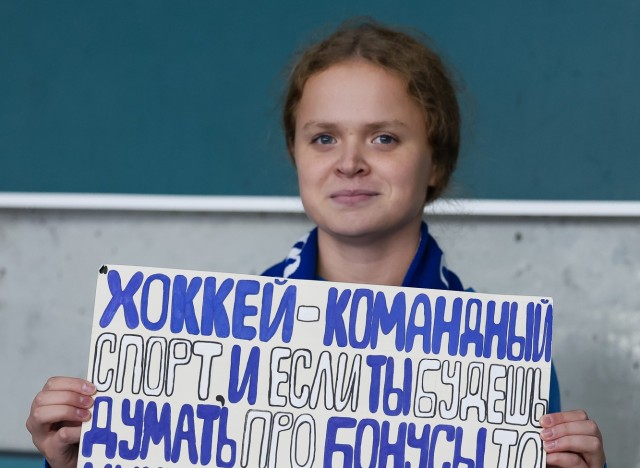 "ХОККЕЙ-КОМАНДНЫЙ
СПОРТ И ЕСЛИ ТЫ БУДЕШЬ
ДУМАТЬ ПРО БОНУСЫ ТО